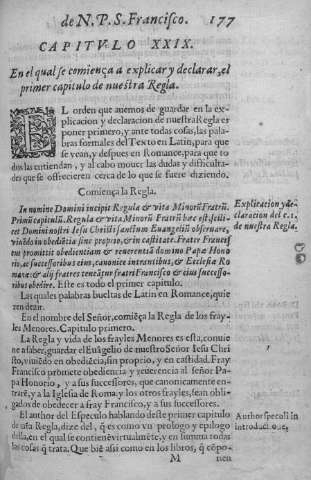 de N. P. S. Francisco. 177
CAPITVLO XXIX.
En el qual se comiença a explicar y declarar, el
primer capitulo de nuestra Regla.
EL orden que auemos de guardar en la ex-
plicacion y declaracion de nuestra Regla es
poner primero, y ante todas cosas, las pala
bras formales del Texto en Latin, para que
se vean, y despues en Romance, para que to
dos las entiendan, y al cabo mouer las dudas y dificulta-
des que se offrecieren cerca de lo que se fuere diziendo.
Comiença la Regla.
In nomine Domini incipit Regula & vita Minorũ Fratrũ.
Primũ capitulũ. Regula & vita Minorũ Fratrũ hæc est, scili-
cet Domini nostri Iesu Christi sanctum Euangeliũ obseruare,
viuẽdo in obediẽtia sine proprio, & in castitate. Frater Francis
cus promittit obedientiam & reuerentiã domino Papæ Hono
rio, ac successoribus eius, canonice intrantibus, & Ecclesiæ Ro
manæ: & alij fratres teneãtur fratri Francisco & eius successo-
ribus obedire. Este es todo el primer capitulo.
Explicacion y de
claracion del c. 1.
de nuestra Regla.
Las quales palabras bueltas de Latin en Romance, quie
ren dezir.
En el nombre del Señor, comiẽça la Regla de los fray-
les Menores. Capitulo primero.
La Regla y vida de los frayles Menores es esta, conuie
ne a saber, guardar el Euãgelio de nuestro Señor Iesu Chri
sto, viuiẽdo en obediẽcia, sin proprio, y en castidad. Fray
Francisco promete obediencia y reuerencia al señor Pa-
pa Honorio, y a sus successores, que canonicamente en-
trarẽ, y a la Iglesia de Roma: y los otros frayles, sean obli-
gados de obedecer a fray Francisco, y a sus successores.
El author del Especulo hablando deste primer capitulo
de nra Regla, dize del, q̃ es como vn prologo y epilogo
della, en el qual se contiene virtualmẽte, y en summa todas
las cosas q̃ trata. Que biẽ assi como en los libros, q̃ cõpo-
Author speculi in
introductione,
M nen